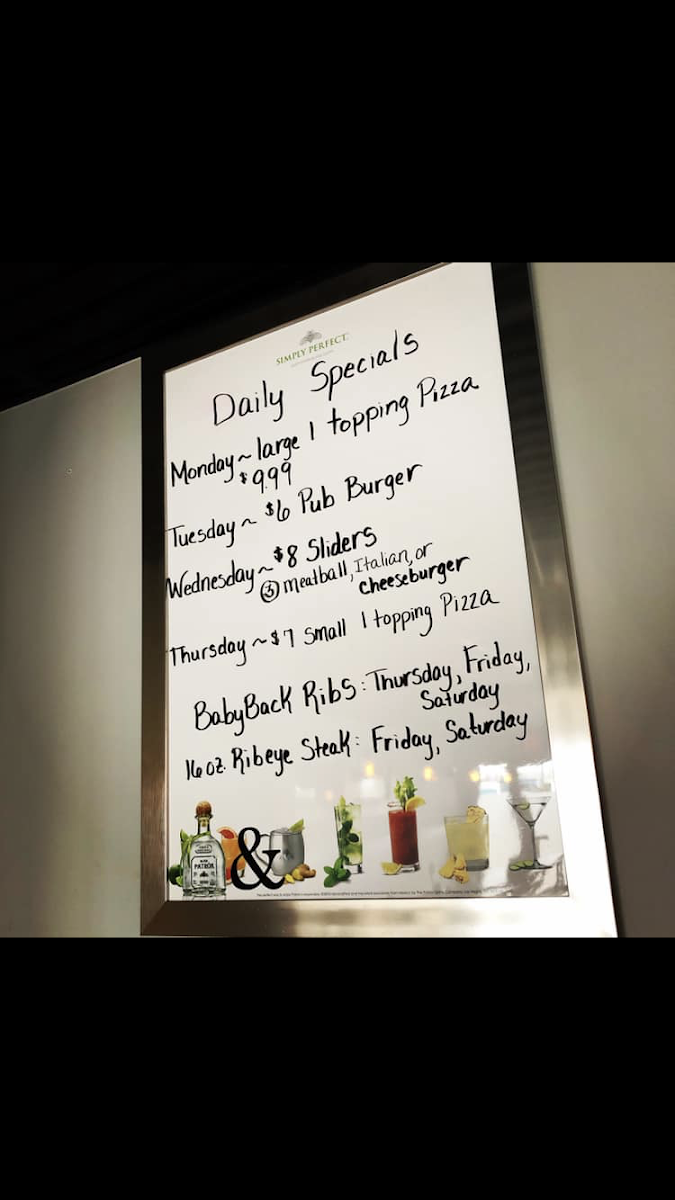 SIMPLY PERFECT
Daily Specials
Monday ~ large 1 topping Pizza
$9.99
Tuesday ~ $6 Pub Burger
Wednesday ~ $8 Sliders
③ meatball, Italian, or
cheeseburger
Thursday ~ $7 small 1 topping Pizza
BabyBack Ribs: Thursday, Friday,
Saturday
16 oz. Ribeye Steak: Friday, Saturday
PATRÓN
&